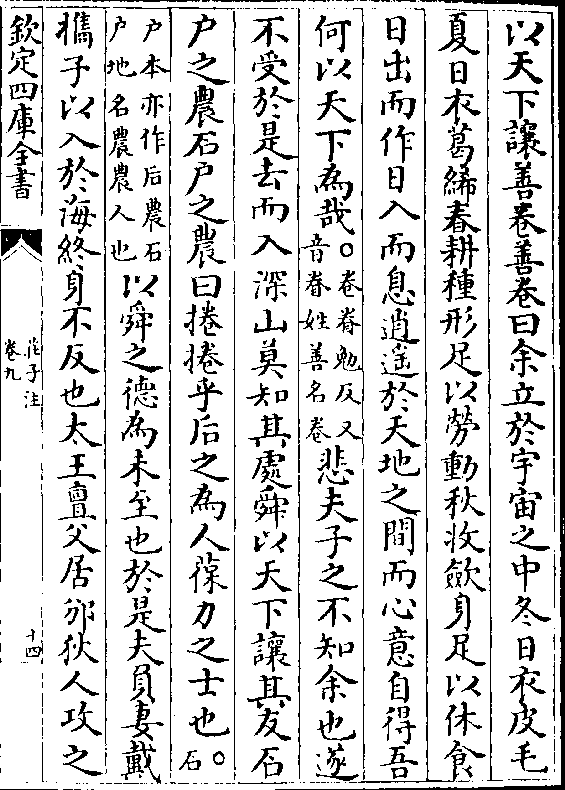 以天下讓善卷善卷曰余立於宇宙之中冬日衣皮毛
夏日衣葛絺春耕種形足以勞動秋收斂身足以休食
日出而作日入而息逍遙於天地之間而心意自得吾
何以天下為哉○卷眷勉反又音眷姓善名卷悲夫子之不知余也遂
不受於是去而入深山莫知其處舜以天下讓其友石
户之農石户之農曰捲捲乎后之為人葆力之士也○石
户本亦作后農石户地名農農人也以舜之德為未至也於是夫負妻戴
攜子以入於海終身不反也太王亶父居邠狄人攻之
欽定四庫全書
莊子注
卷九
十四